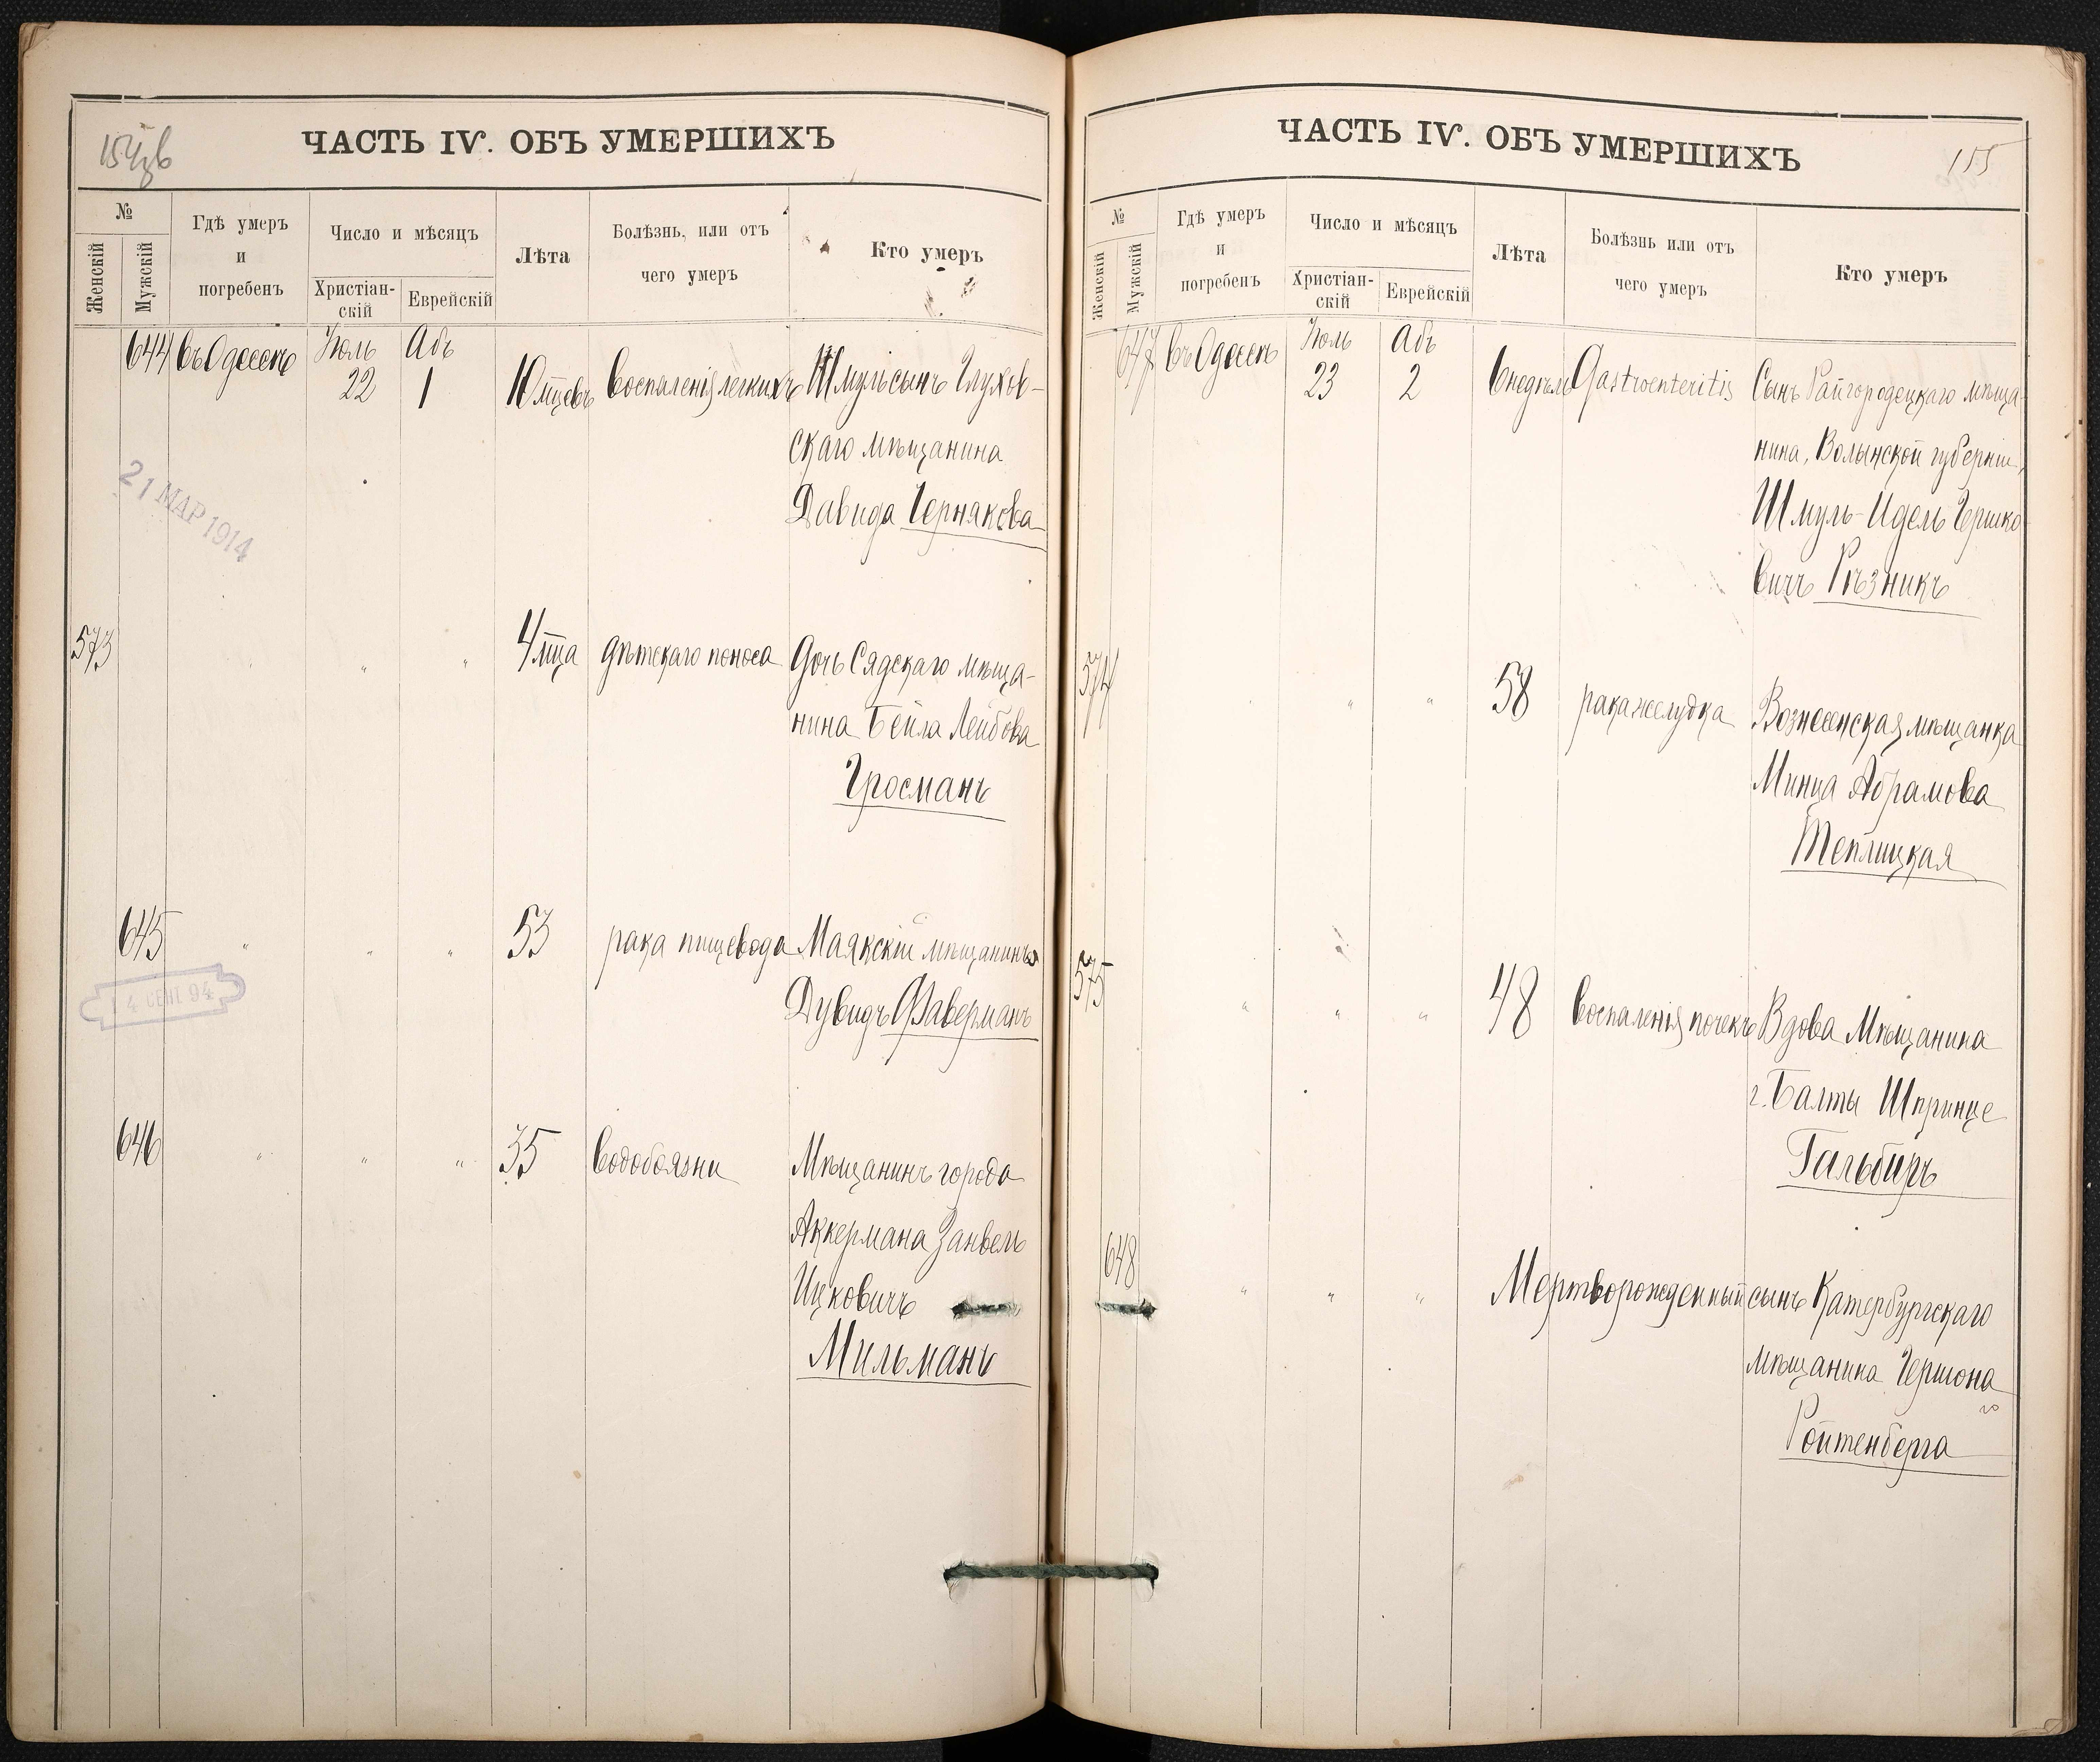 154об
ЧАСТЬ IV. ОБЪ УМЕРШИХЪ
№
Женскій
Мужскій
Гдѣ умеръ
и
погребенъ
Число и мѣсяцъ
Христіан-
скій
Еврейскій
Лѣта
Болѣзнь, или отъ
чего умеръ
Кто умеръ
644 въ Одессѣ Іюль 22 Абъ 1 10 мцевъ воспаленія легкихъ Шмуль сынъ Глухов-
скаго мѣщанина
Давида Чернякова
21 МАР 1914
573 " " " 4 мца дѣтскаго поноса Дочь Сядскаго мѣща-
нина Бейла Лейбова
Гросманъ
645 " " " 53 рака пищевода Маякскій мѣщанинъ
Дувидъ Фаверманъ
14 СЕНТ 94
646 " " " 35 водобоязни Мѣщанинъ города
Аккермана Занвель
Ицковичъ
Мильманъ
ЧАСТЬ IV. ОБЪ УМЕРШИХЪ
155
№
Женскій
Мужскій
Гдѣ умеръ
и
погребенъ
Число и мѣсяцъ
Христіан-
скій
Еврейскій
Лѣта
Болѣзнь или отъ
чего умеръ
Кто умеръ
647 въ Одессѣ Іюль 23 Абъ 2 6 недѣль Gastroenteritis Сынъ Райгородецкаго мѣща-
нина, Волынской губерніи,
Шмуль-Идель Гершко-
вичъ Рѣзникъ
574 " " " 58 рака желудка Вознесенская мѣщанка
Минца Абрамова
Теплицкая
575 " " " 48 воспаленія почекъ Вдова Мѣщанина
г. Балты Шпринце
Гальбиръ
648 " " " Мертворожденный сынъ Катербургскаго
мѣщанина Гершона
Ройтенберга